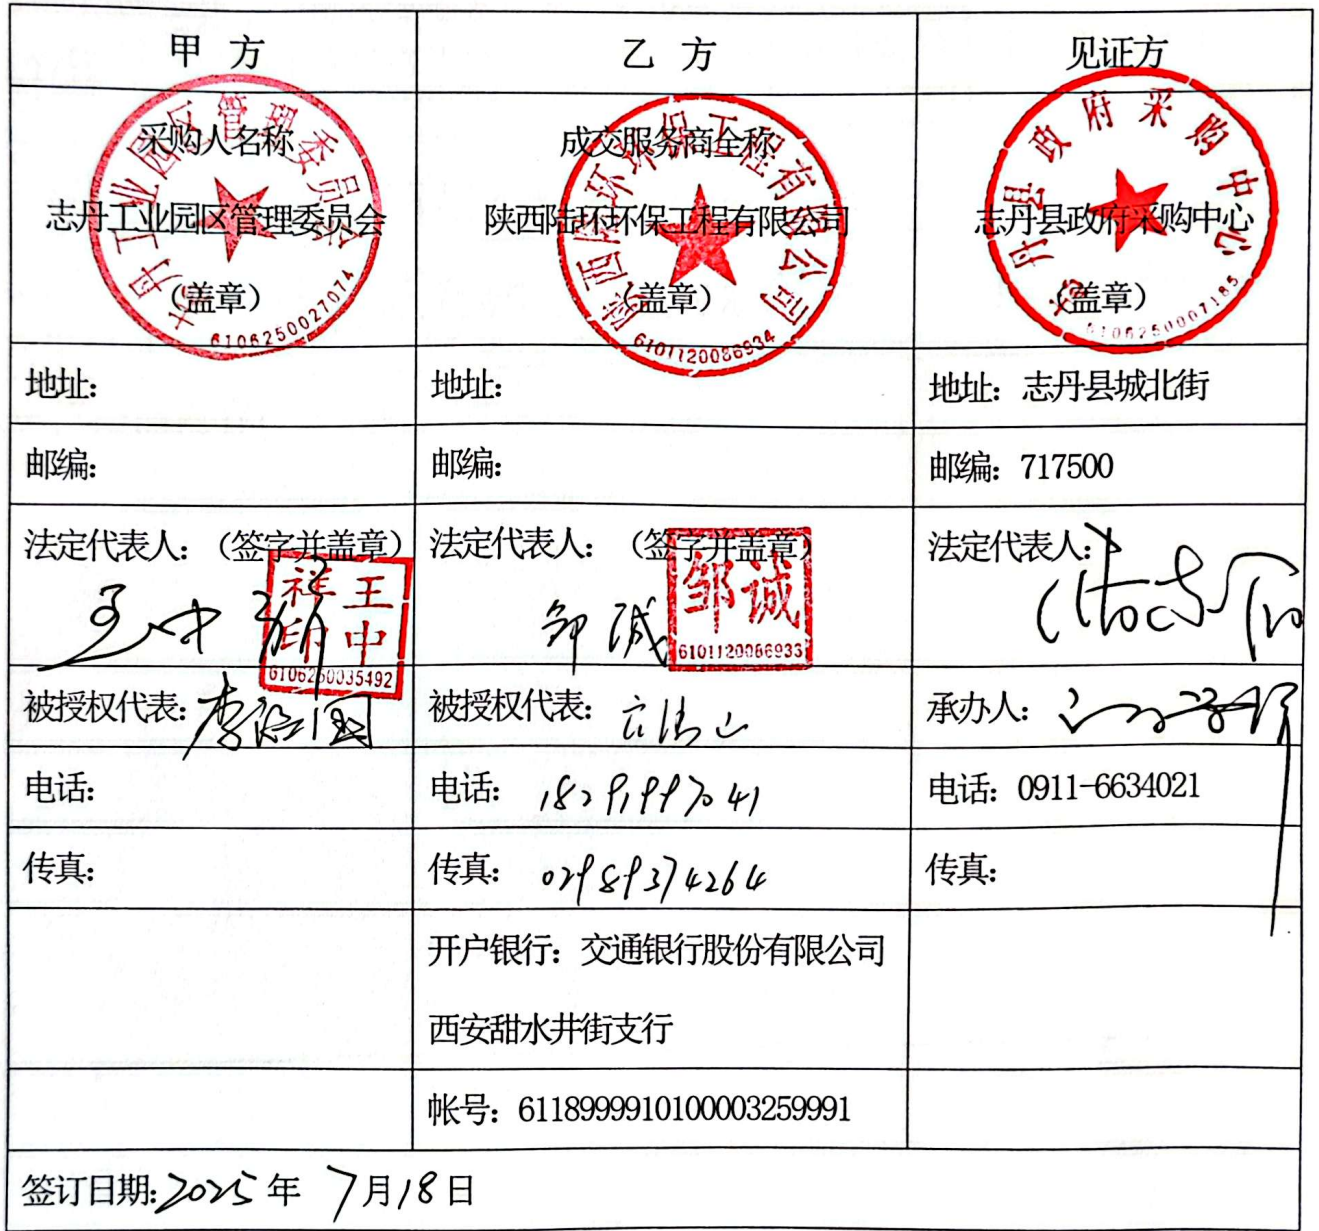 甲 方
乙 方
见证方
采购人名称
志丹工业园区管理委员会
（盖章）
志丹工业园区管理委员会
6106250027074
成交服务商全称
陕西陆环环保工程有限公司
（盖章）
陕西陆环环保工程有限公司
6101120086934
志丹县政府采购中心
（盖章）
志丹县政府采购中心
6106250007185
地址：
地址：
地址：志丹县城北街
邮编：
邮编：
邮编：717500
法定代表人：（签字并盖章）
王中祥
王中祥印
6106250035492
法定代表人：（签字并盖章）
邹诚
邹诚
6101120086933
法定代表人：
被授权代表：
被授权代表：
承办人：
电话：
电话：18291997041
电话：0911-6634021
传真：
传真：02989374264
传真：
开户银行：交通银行股份有限公司
西安甜水井街支行
帐号：611899991010000325991
签订日期:2025年 7月18日